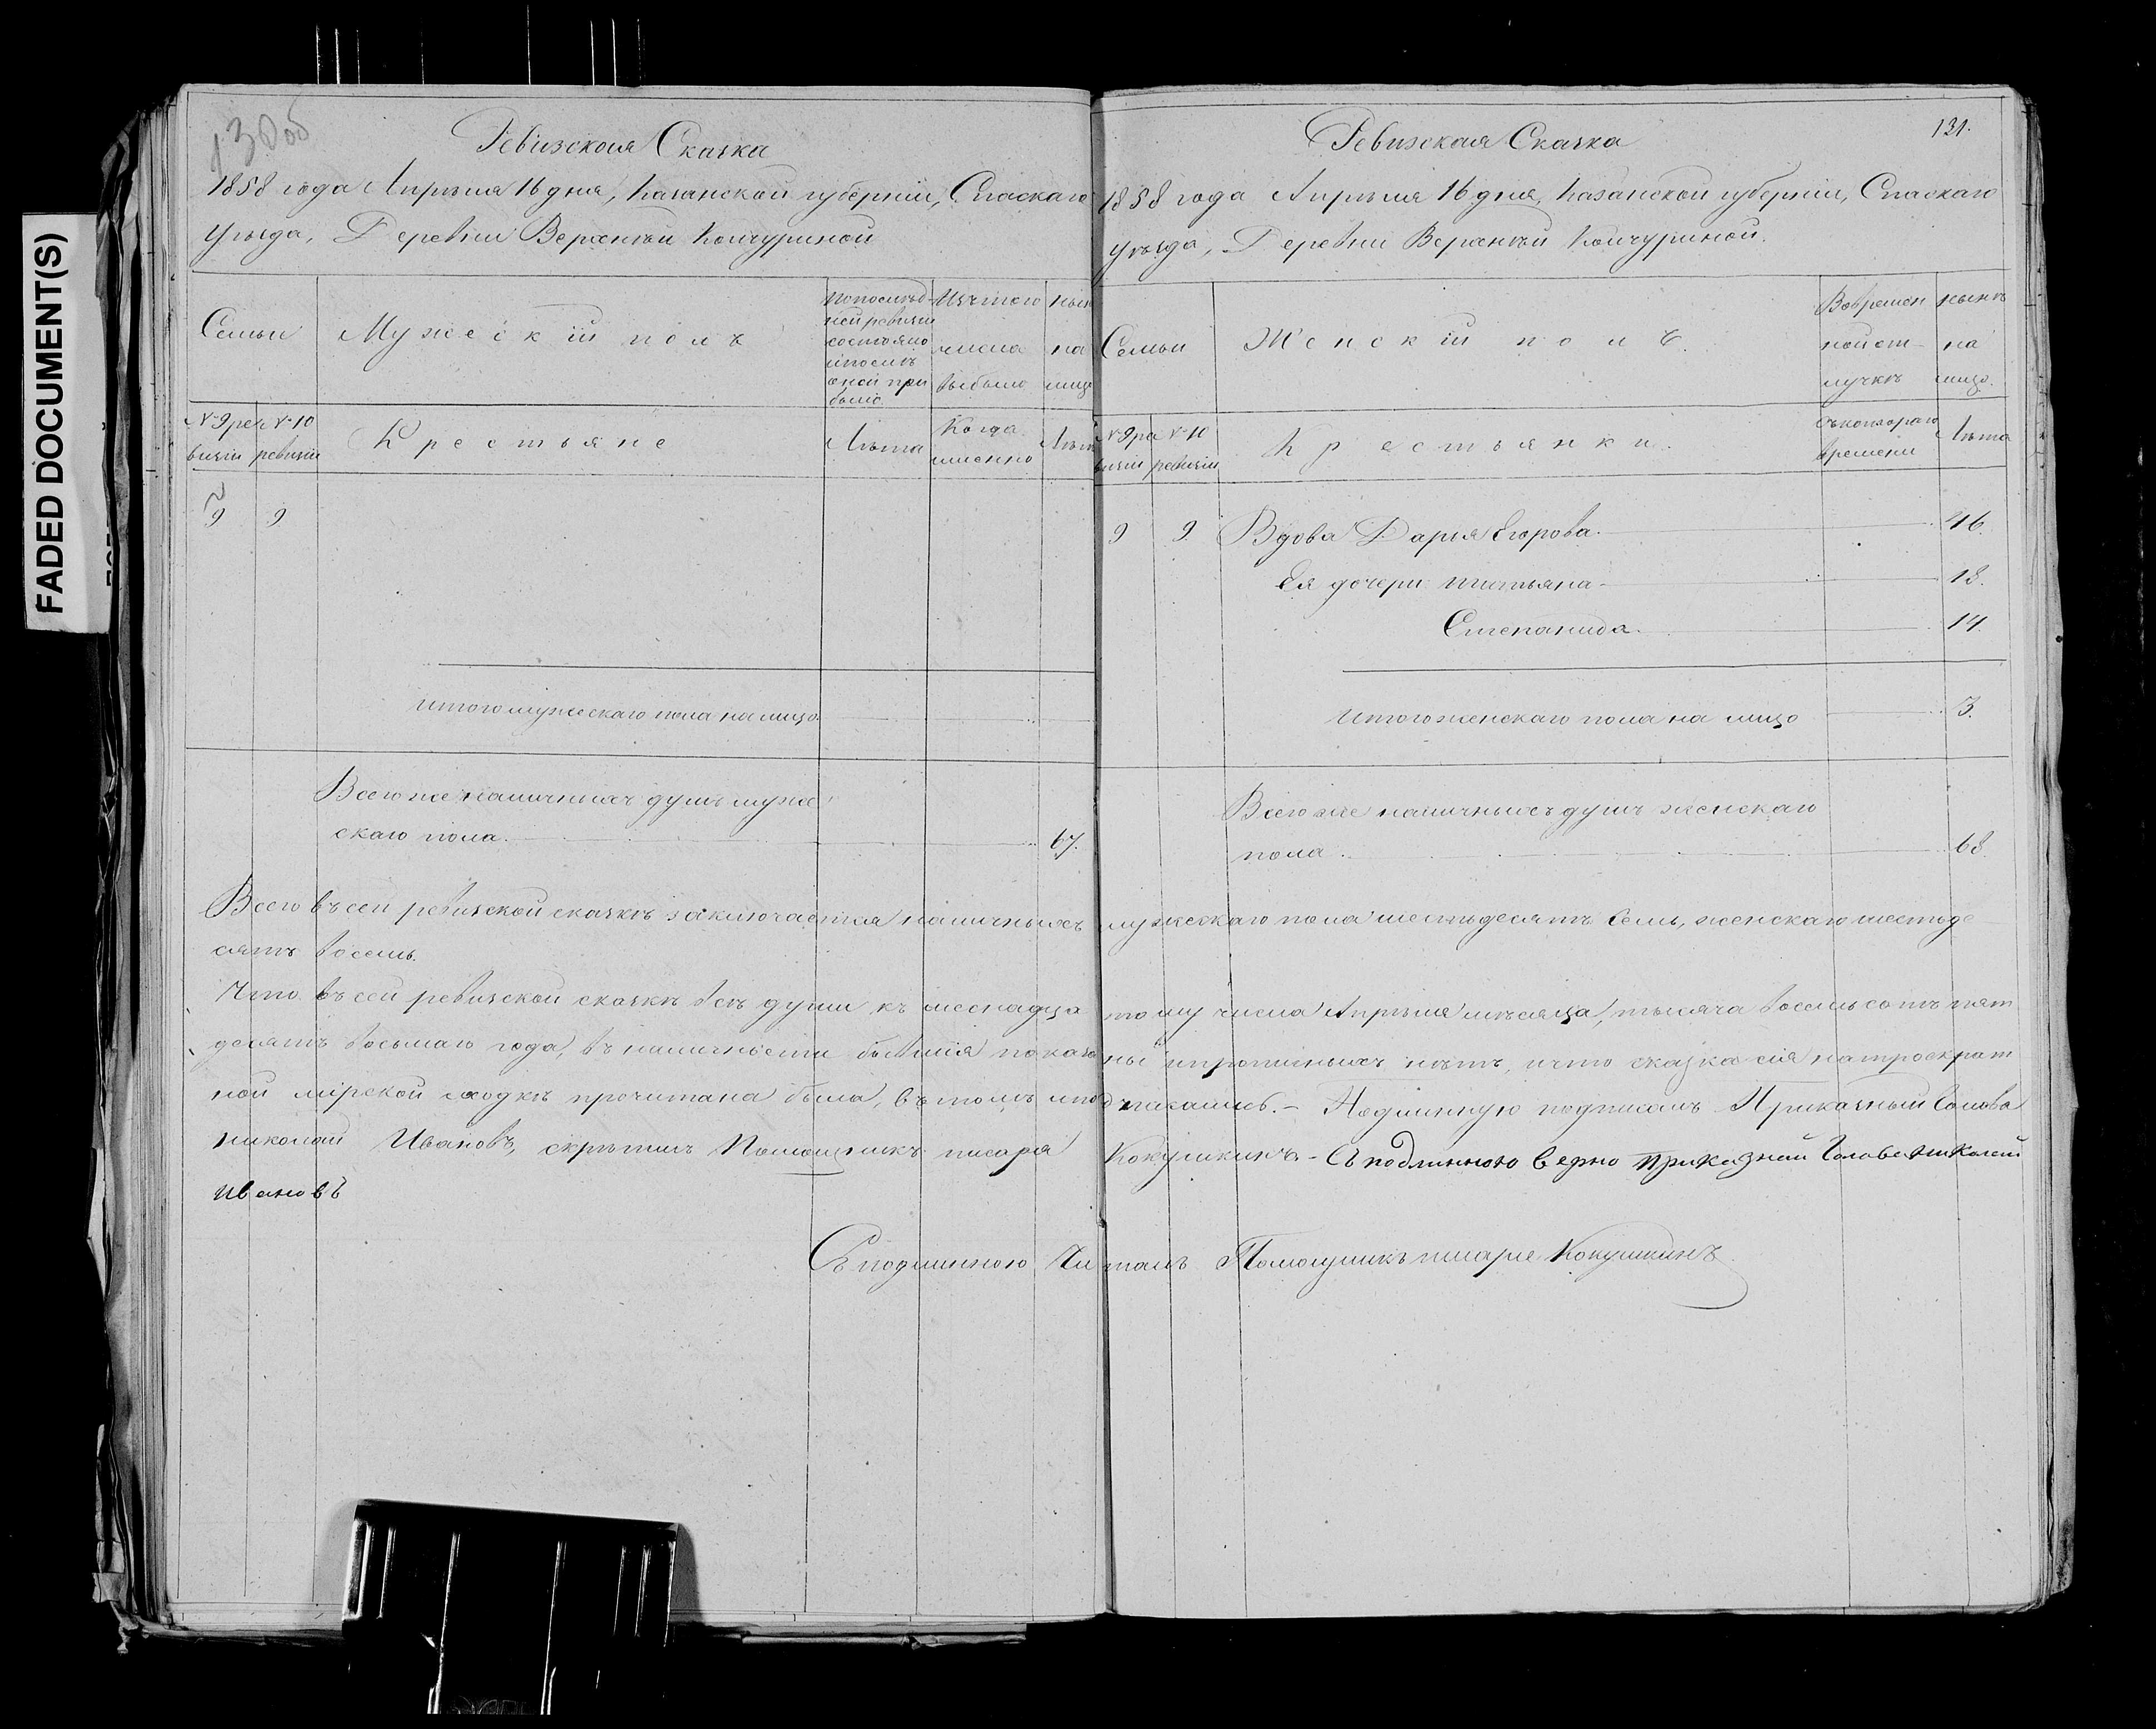 FADED DOCUMENT(S)
130об
Ревизская Сказка
1858 года Апрѣля 16 дня, Казанской губерніи, Спаскаго
уѣзда, Деревни Верхнѣй Кончуриной
Семьи
Мужескій полъ
По послѣд-
ней ревизіи
состояло
и послѣ
оной при
было.
Изъ того
числа
выбыло
нынѣ
на
лицо
№ 9 ре
визіи
№ 10
ревизіи
Крестьяне
Лѣта
Когда
именно
Лѣта
9 9
Итого мужескаго пола на лицо
Всего же наличныхъ душъ муже
скаго пола. 67.
131.
Ревизская Сказка
1858 года Апрѣля 16 дня, Казанской губерніи, Спаскаго
уѣзда, Деревни Верхнѣй Кончуриной.
Семьи
Женскій полъ.
Во времен
ной от-
лучкѣ
нынѣ
на
лицо.
№ 9 ре
визіи
№ 10
ревизіи
Крестьянки.
Съ котораго
времени
Лѣта
9 9 Вдова Дарья Егорова. 46.
Ея дочери Татьяна 18.
Степанида. 14.
Итого женскаго пола на лицо 3.
Всего же наличныхъ душъ женскаго
пола. 68.
Всего въ сей ревизской сказкѣ заключается наличныхъ мужескаго пола шестьдесятъ семь, женскаго шестьде
сятъ восемь.
Что въ сей ревизской сказкѣ всѣ души, къ шеснадца тому числа Апрѣля мѣсяца, тысяча восемьсотъ пят
десятъ восьмаго года, въ наличности бывшія показа ны и прописныхъ нѣтъ, и что сказка сія на троекрат
ной мірской сходкѣ прочитана была, въ томъ и под писались. – Подлинную подписалъ Приказный Голова
Николай Ивановъ, скрѣпилъ Помощникъ писаря Кокушкинъ. – Съ подлинною верно приказный Голова николай
ивановъ
Съ подлинною Читалъ Помощникъ писаря Кокушкинъ